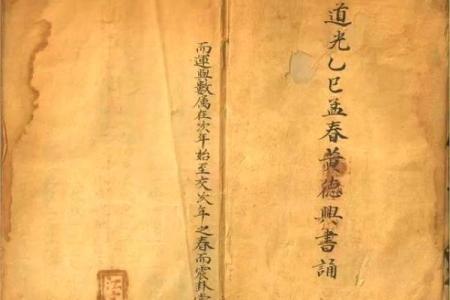 道光乙巳孟春黄德興書誦
而運與數屬在次年始至交次年之春而震卦